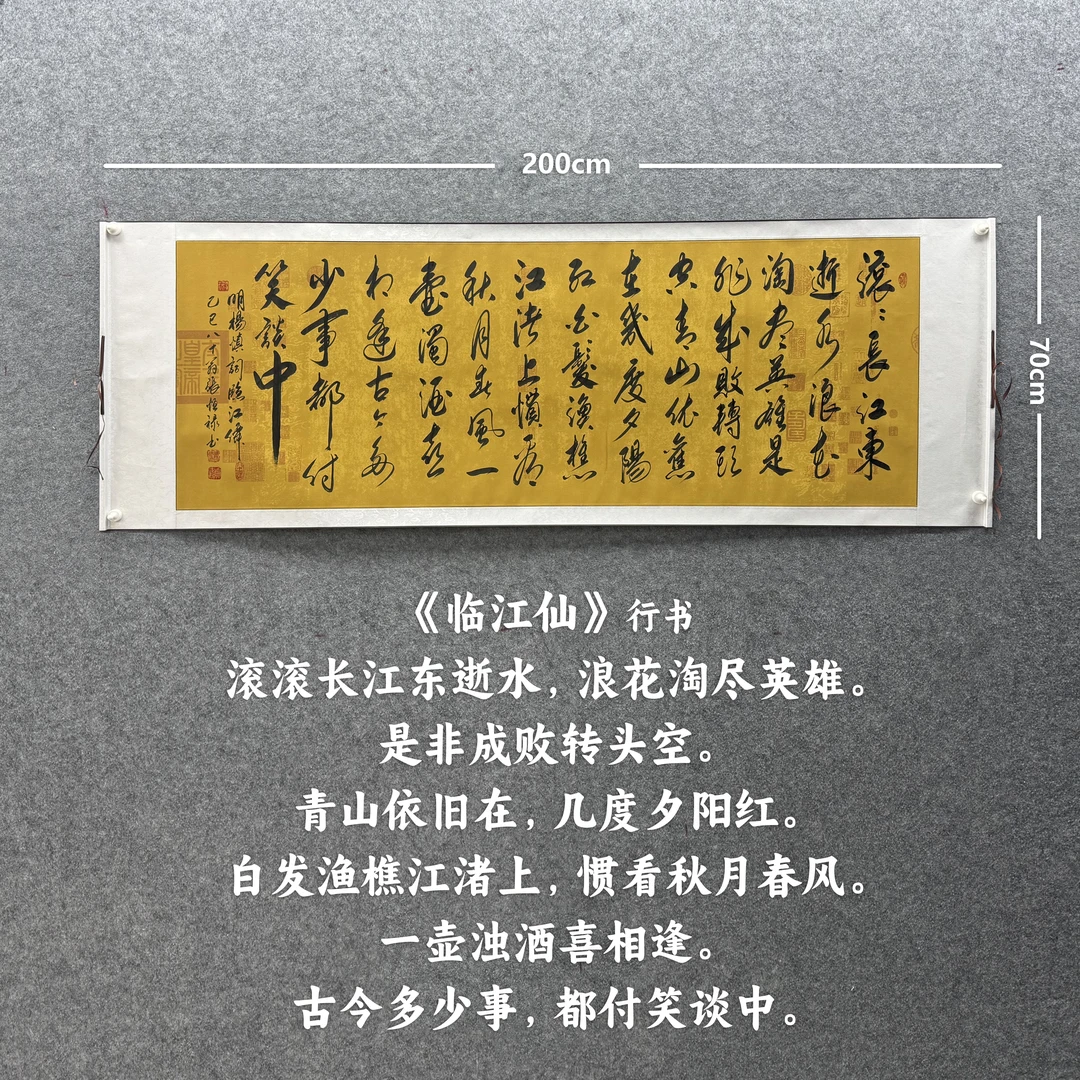 200cm
70cm
滚〻長江東
逝水浪花
淘尽英雄是
非成敗轉頭
空青山依舊
在幾度夕陽
红白髮漁樵
江渚上慣看
秋月春風一
壺濁酒喜
相逢古今多
少事都付
笑談中
明楊慎詞临江仙
乙巳八十翁書
《临江仙》行书
滚滚长江东逝水，浪花淘尽英雄。
是非成败转头空。
青山依旧在，几度夕阳红。
白发渔樵江渚上，惯看秋月春风。
一壶浊酒喜相逢。
古今多少事，都付笑谈中。